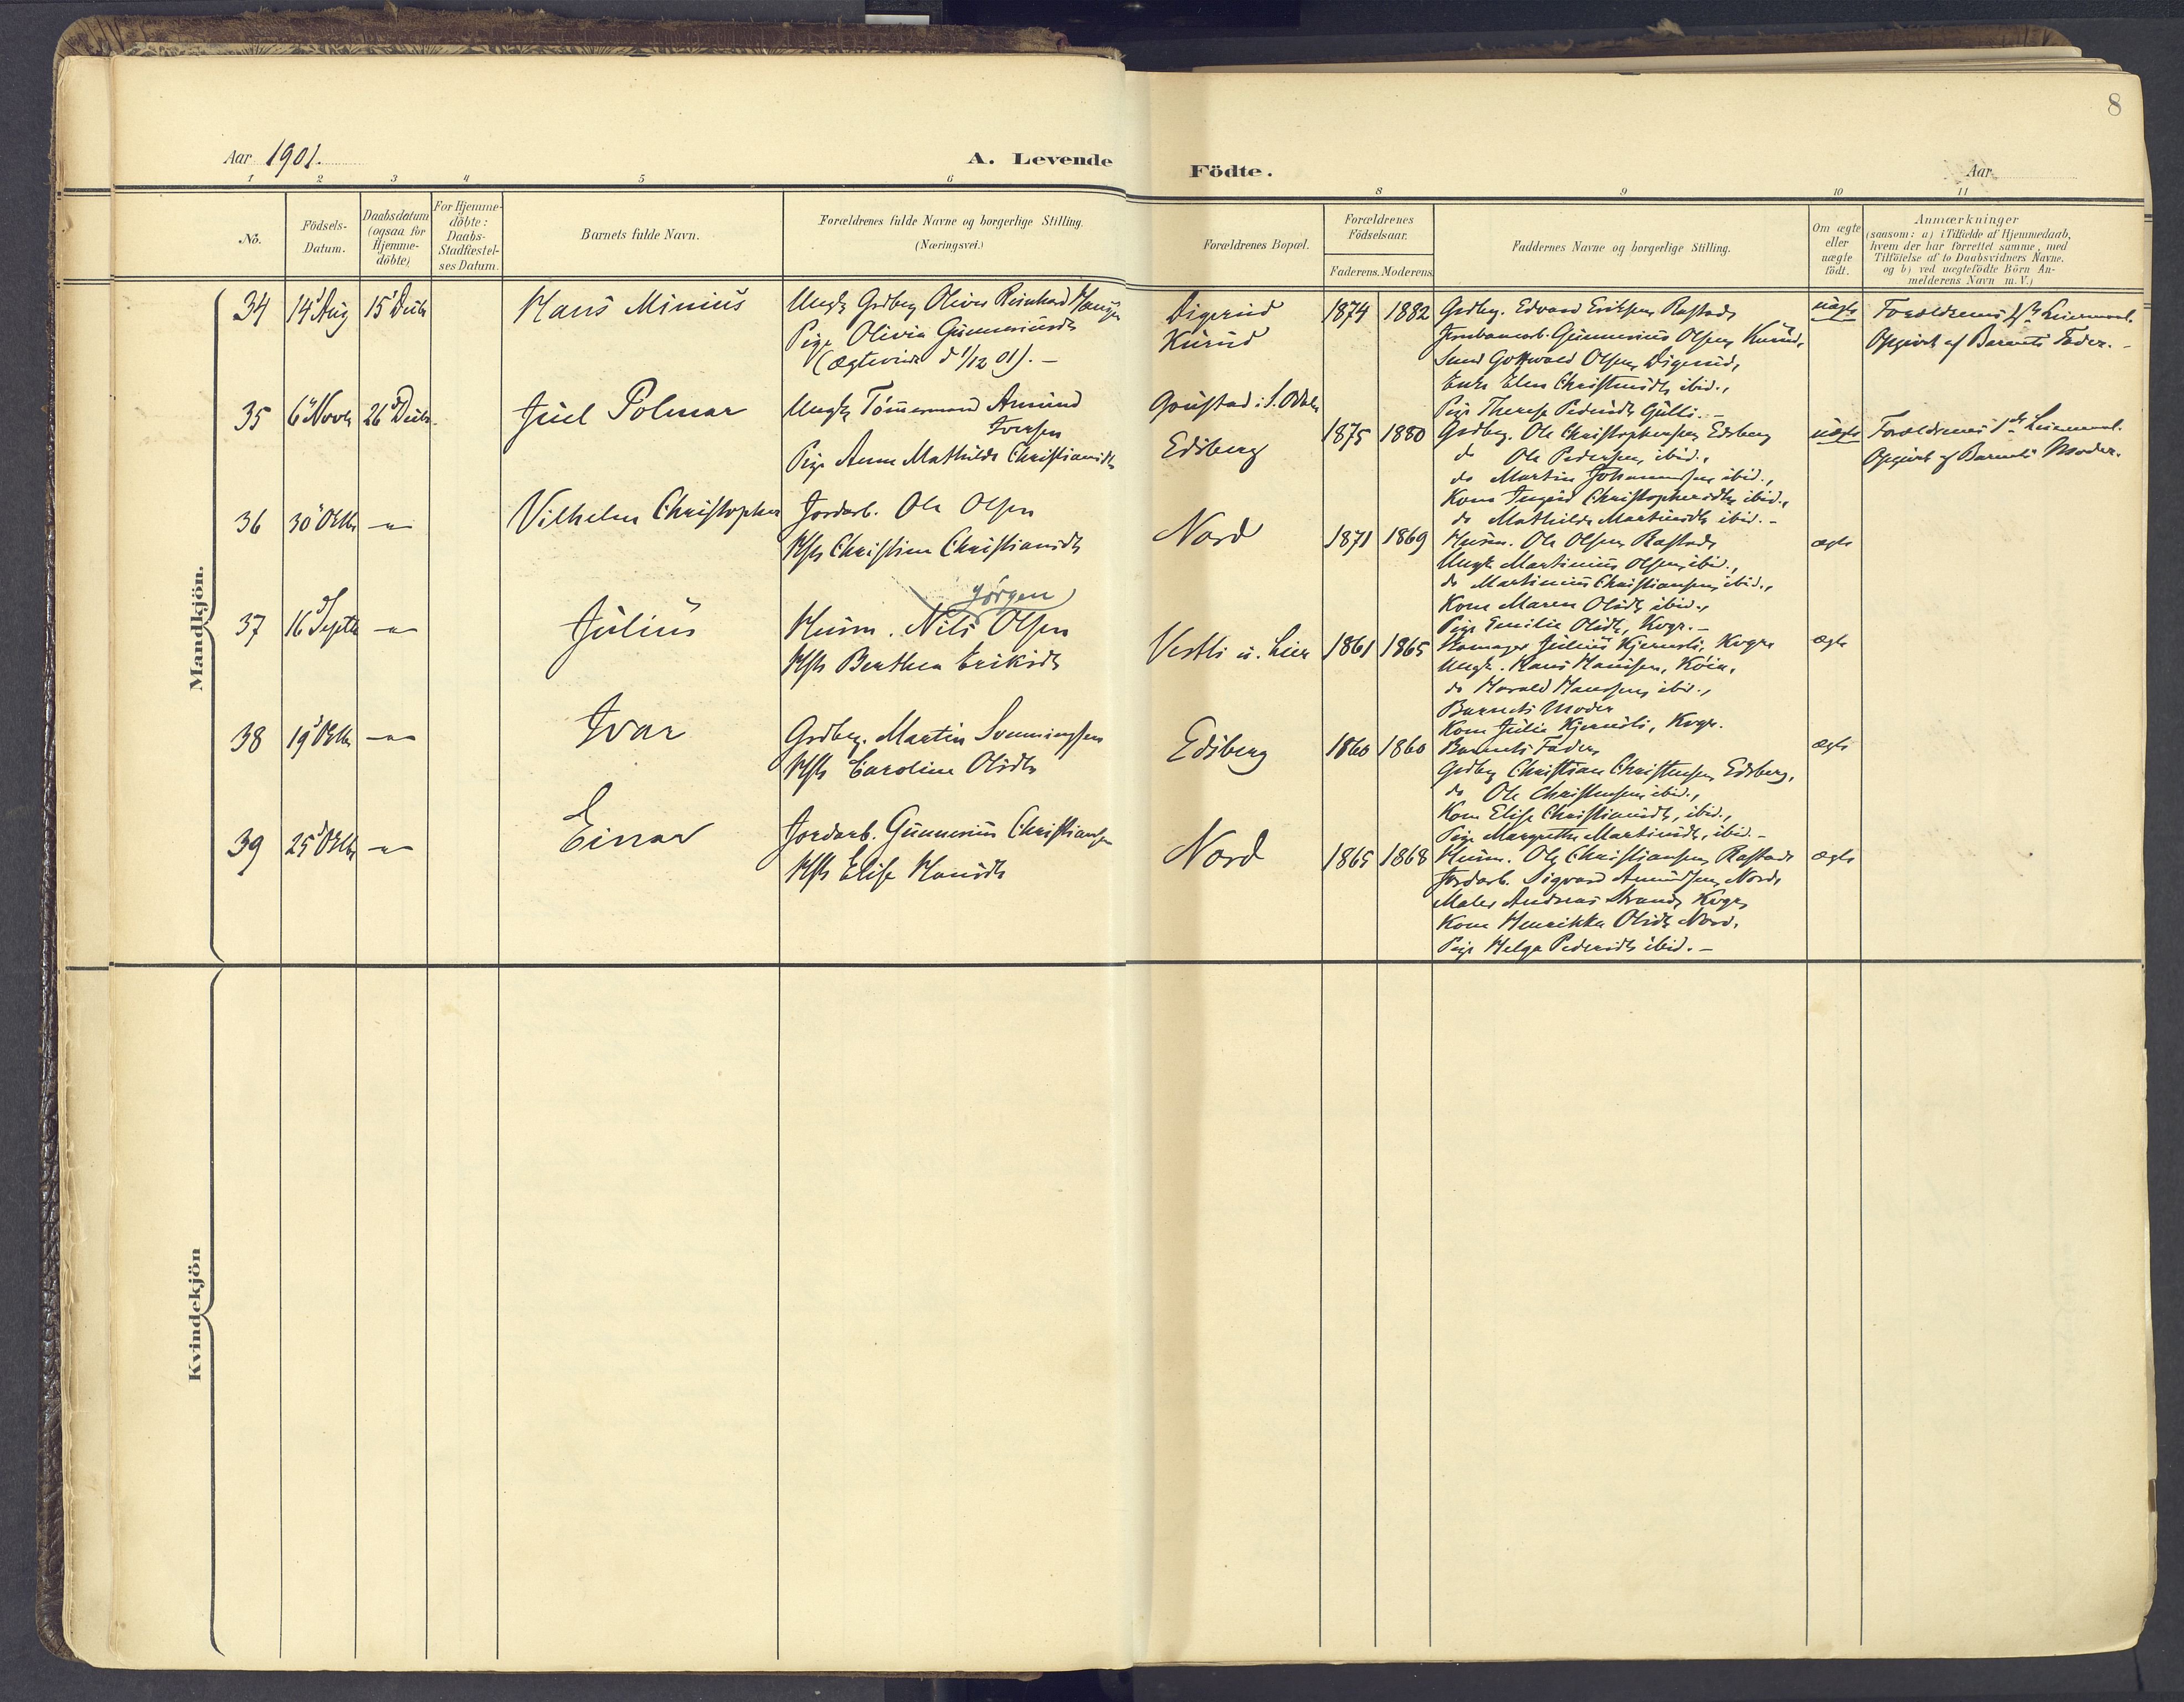 8
Aar 1901.
A. Levende Födte.
Aar
1 2 3 4 5 6 8 9 10 11
No.
Födsels-Datum.
Daabsdatum (ogsaa for Hjemme-döbte)
For Hjemme-döbte: Daabs-Stadfæstel-ses Datum.
Barnets fulde Navn.
Forældrenes fulde Navne og borgerlige Stilling.
(Næringsvei.)
Forældrenes Bopæl.
Forældrenes Födselsaar.
Faderens. Moderens
Faddernes Navne og borgerlige Stilling.
Om ægte eller uægte födt.
Anmærkninger
(saasom: a) i Tilfælde af Hjemmedaab,
hvem der har forrettet samme, med
Tilföielse af to Daabsvidners Navne.
og b) ved uægtefödte Börn An-
melderens Navn m. V.)
Mandkjön.
34 14 Aug 15 Decbr Hans Minius
Ungk. Grdbrg. Oliver Reinhard
Pige Olivia Gunneriusdtr
(Ægteviede d 1/12 01). –
Digerud
Kurud
1874 1882
Grdbrg. Edvard Eriksen, Rastad,
Jernbanearb. Gunnerius Olsen, Kurud,
Gottwald Olsen, Digerud,
Enke Elen Christensdtr, ibid.,
Pige Therese Pedersdtr, Gulli. –
uægte
Forældrenes Leiermaal.
Opgivet af Barnets Fader. –
35 6 Novbr 26 Decbr. Juel Polmar
Ungk. Tömmermand Amund
Iversen
Pige Anne Mathilde Christiansdtr
Grustad i S. Odalen
Edsberg
1875 1880
Grdbrg. Ole Christophersen, Edsberg
do Ole Pedersen, ibid.,
do Martin Johannesen, ibid.,
Kone Ingrid Christophersdtr, ibid.,
do Mathilde Martinsdtr, ibid. –
uægte
Forældrenes 1ste Leiermaal.
Opgivet af Barnets Moder.
36 30 Octbr –"– Vilhelm Christopher
Jordarb. Ole Olsen
Hst. Christine Christiansdtr
Nord
1871 1869
Husm. Ole Olsen, Rastad,
Ungk. Martinius Olsen, ibid.,
do Martinius Christiansen, ibid.,
Kone Maren Olsdtr, ibid.,
Pige Emilie Olsdtr, Kvgr. –
ægte
37 16 Septbr –"– Julius
Jörgen
Husm. Nils Olsen
Hst. Berthea Eriksdtr
Vestli u. Lier
1861 1865
Skomager Julius Kjernsli, Kvgr.
Ungk. Hans Hansen, Köia,
do Harald Hansen, ibid.,
Barnets Moder
Kone Julie Kjernsli, Kvgr.
ægte
38 19 Octbr –"– Ivar
Grdbrg. Martin Svenningsen
Hst. Caroline Olsdtr
Edsberg
1860 1860
Barnets Fader,
Grdbrg. Christian Christensen, Edsberg,
do Ole Christensen, ibid.,
Kone Elise Christiansdtr, ibid.,
Pige Margrethe Martinsdtr, ibid. –
ægte
39 25 Octbr –"– Einar
Jordarb. Gunnerius Christiansen
Hst. Elise Hansdtr
Nord
1865 1868
Husm. Ole Christiansen, Rastad
Jordarb. Sigvard Amundsen, Nord,
Maler Andreas Strand, Kvgr.
Kone Henrikke Olsdtr, Nord,
Pige Helga Pedersdtr, ibid. –
ægte
Kvindekjön